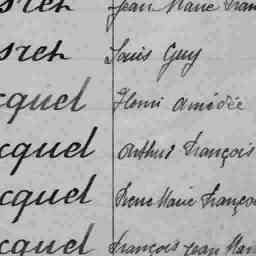 Jean Marie Fran
Louis Guy
cquel Henri Amédée
cquel Arthur François
cquel Pierre Marie Françoi
cquel François Jean Mari